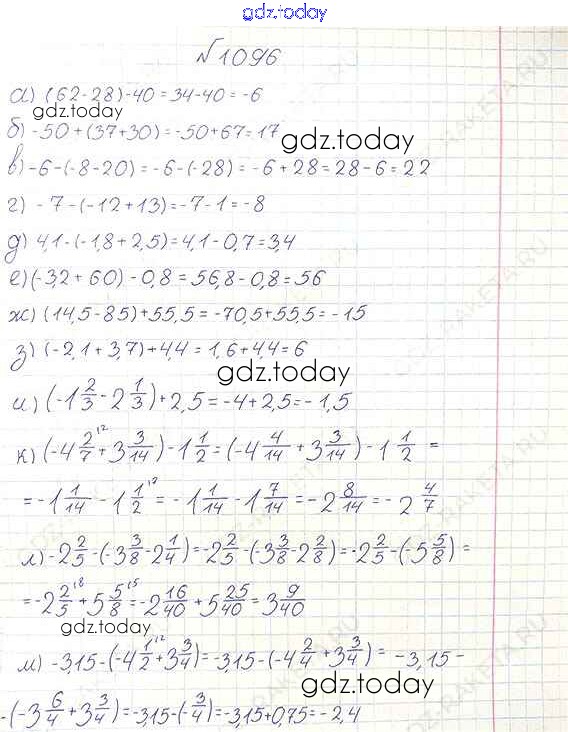 gdz.today
№1096
а) (62-28)-40=34-40=-6
gdz.today
б) -50+(37+30)=-50+67=17
gdz.today
в) -6-(-8-20)=-6-(-28)=-6+28=28-6=22
г) -7-(-12+13)=-7-1=-8
д) 4,1-(-1,8+2,5)=4,1-0,7=3,4
е) (-3,2+60)-0,8=56,8-0,8=56
ж) (14,5-85)+55,5=-70,5+55,5=-15
з) (-2,1+3,7)+4,4=1,6+4,4=6
gdz.today
и) (-1 2/3-2 1/3)+2,5=-4+2,5=-1,5
к) (-4 2/7+3 3/14)-1 1/2=(-4 4/14+3 3/14)-1 1/2=
=-1 1/14-1 1/2=-1 1/14-1 7/14=-2 8/14=-2 4/7
л) -2 2/5-(-3 3/8-2 1/4)=-2 2/5-(-3 3/8-2 2/8)=-2 2/5-(-5 5/8)=
=-2 2/5+5 5/8=-2 16/40+5 25/40=3 9/40
gdz.today
м) -3,15-(-4 1/2+3 3/4)=-3,15-(-4 2/4+3 3/4)=-3,15-
gdz.today
-(-3 6/4+3 3/4)=-3,15-(-3/4)=-3,15+0,75=-2,4